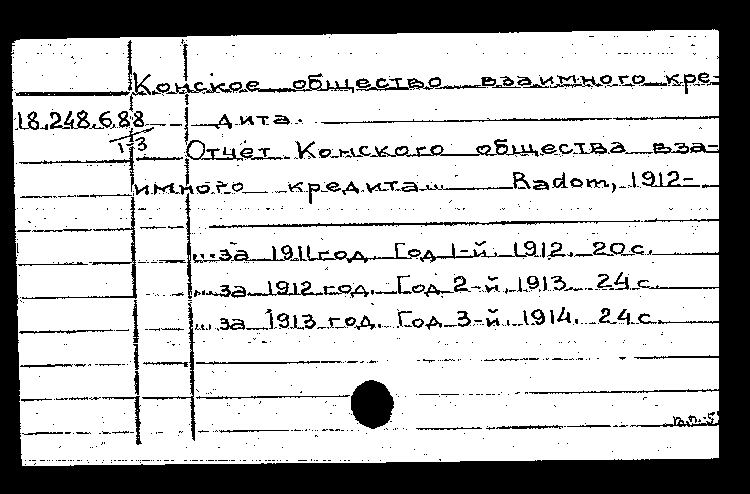 Конское общество взаимного кре-
18.248.6.88 дита.
1-3 Отчет Конского общества вза-
имного кредита... Radom, 1912-
...за 1911 год. Год 1-й. 1912. 20 с.
...за 1912 год. Год 2-й. 1913. 24 с.
...за 1913 год. Год 3-й. 1914. 24 с.